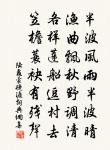 半波風雨半波晴
漁曲飄秋野調清
各樣蓮船逗村去
笠簷蓑袂有殘聲
陸龜蒙晚渡詞典網書